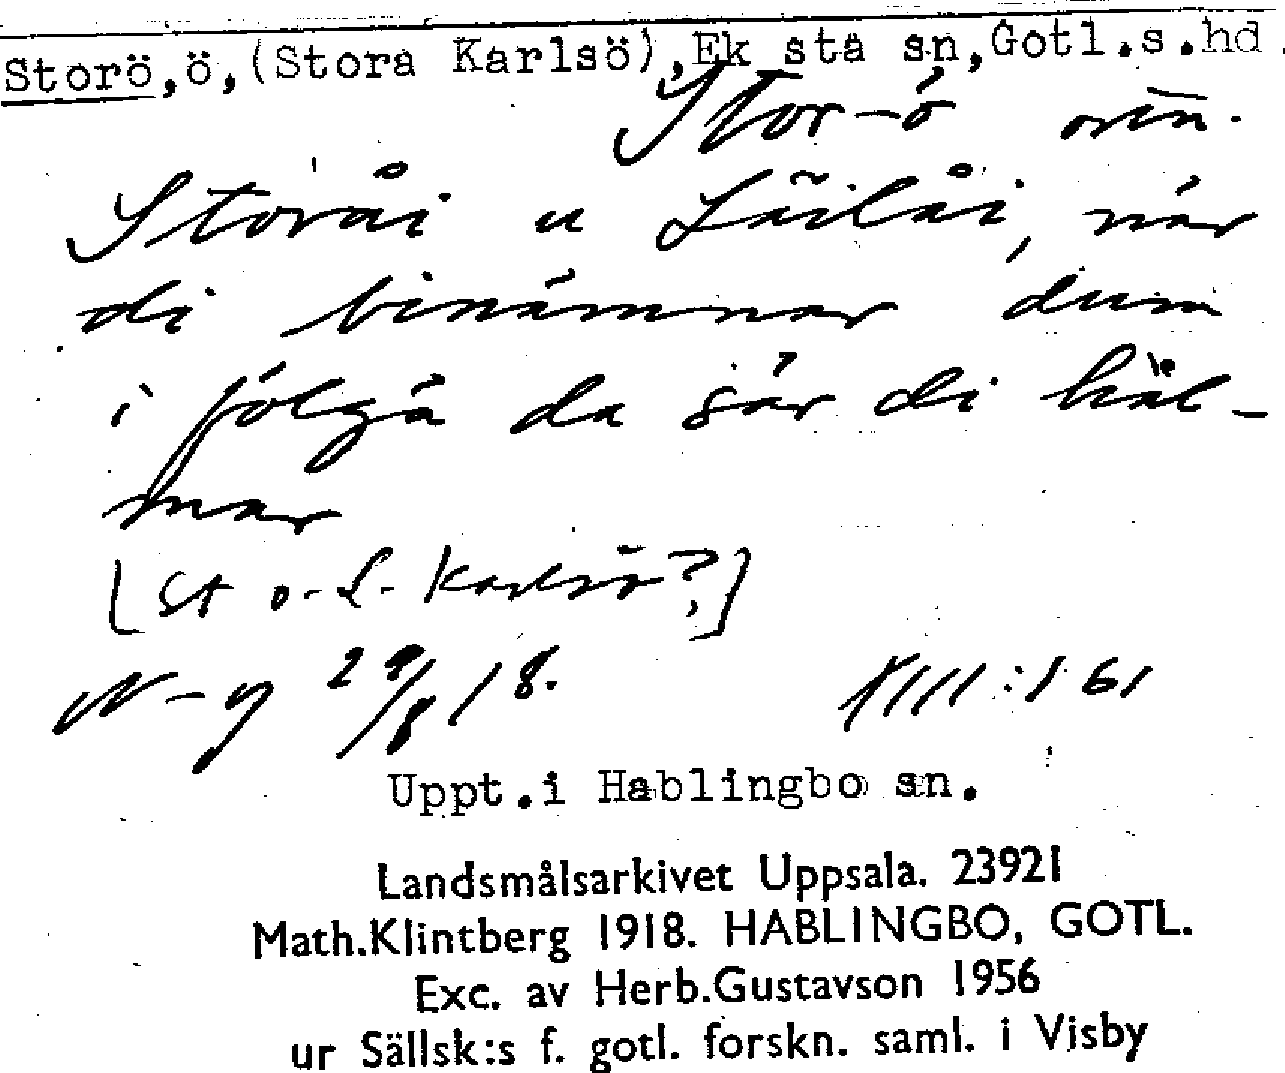 Storö,ö,(Stora Karlsö),Eksta sn,Gotl.s.hd.
Stor-ö ortn.
Storåi u Läilåi, när
di binämnar dum
i fölgä da sär di häl-
mar
[St o. L. Karlsö?]
N-y 29/8 18. XIII:161
Uppt.i Hablingbo sn.
Landsmålsarkivet Uppsala. 23921
Math.Klintberg 1918. HABLINGBO, GOTL.
Exc. av Herb.Gustavson 1956
ur Sällsk:s f. gotl. forskn. saml. i Visby